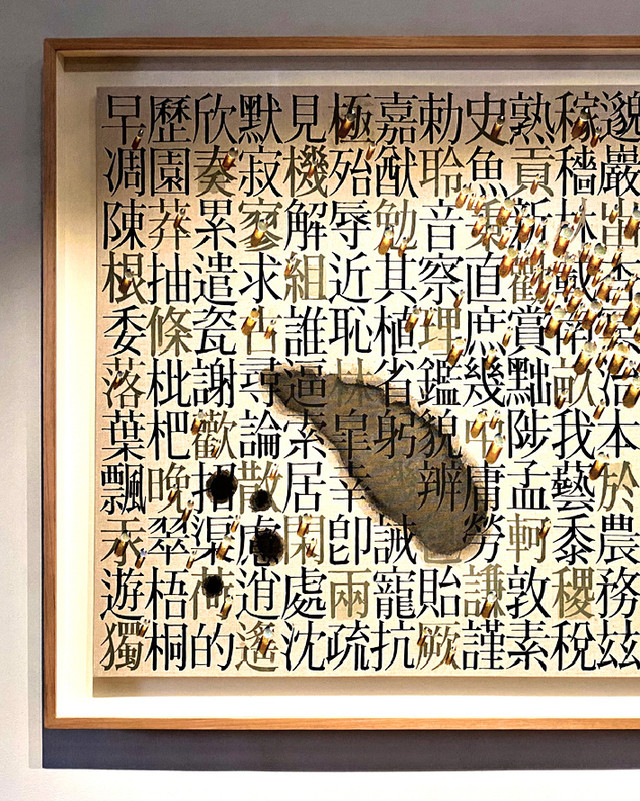 邈巖岫杳冥治本於農務玆
稼穡載南畝我藝黍稷稅
孰貢新勸賞黜陟孟軻敦素
史魚秉直庶幾中庸勞謙謹
勅聆音察理鑑貌辨色貽厥
嘉猷勉其植省躬誡寵抗
極殆辱近恥林皐幸卽兩疏
見機解組誰逼索居閑處沈
默寂寥求古尋論散慮逍遙
欣奏累遣瓷謝歡招渠荷的
歷園莽抽條枇杷晩翠梧桐
早凋陳根委落葉飄遊獨